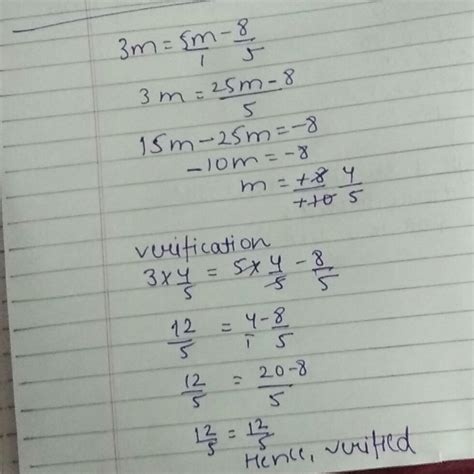 3m = 5m/1 - 8/5
3m = 25m-8/5
15m-25m=-8
-10m=-8
m = +8/+10 4/5
verification
3×4/5 = 5×4/5 - 8/5
12/5 = 4/1 - 8/5
12/5 = 20-8/5
12/5 = 12/5
Hence, verified